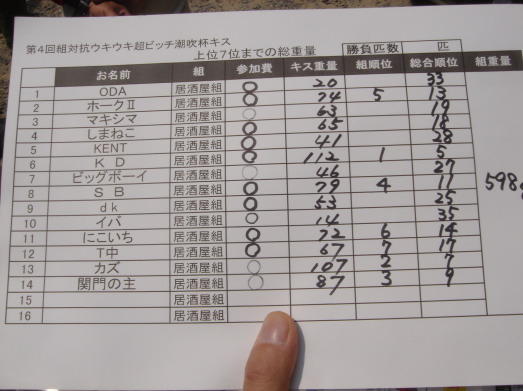 第4回組対抗ウキウキ超ビッチ潮吹杯キス
上位7位までの総重量 勝負匹数 匹
お名前 組 参加費 キス重量 組順位 総合順位 組重量
1 ODA 居酒屋組 ○ 20 33
2 ホークⅡ 居酒屋組 ○ 74 5 13
3 マキシマ 居酒屋組 ○ 63 19
4 しまねこ 居酒屋組 ○ 65 18
5 KENT 居酒屋組 ○ 41 28
6 KD 居酒屋組 ○ 112 1 5
7 ビッグボーイ 居酒屋組 ○ 46 27
8 SB 居酒屋組 ○ 79 4 11 598g
9 dk 居酒屋組 ○ 53 25
10 イバ 居酒屋組 ○ 14 35
11 にこいち 居酒屋組 ○ 72 6 14
12 T中 居酒屋組 ○ 67 7 17
13 カズ 居酒屋組 ○ 107 2 7
14 関門の主 居酒屋組 ○ 87 3 9
15 居酒屋組
16 居酒屋組